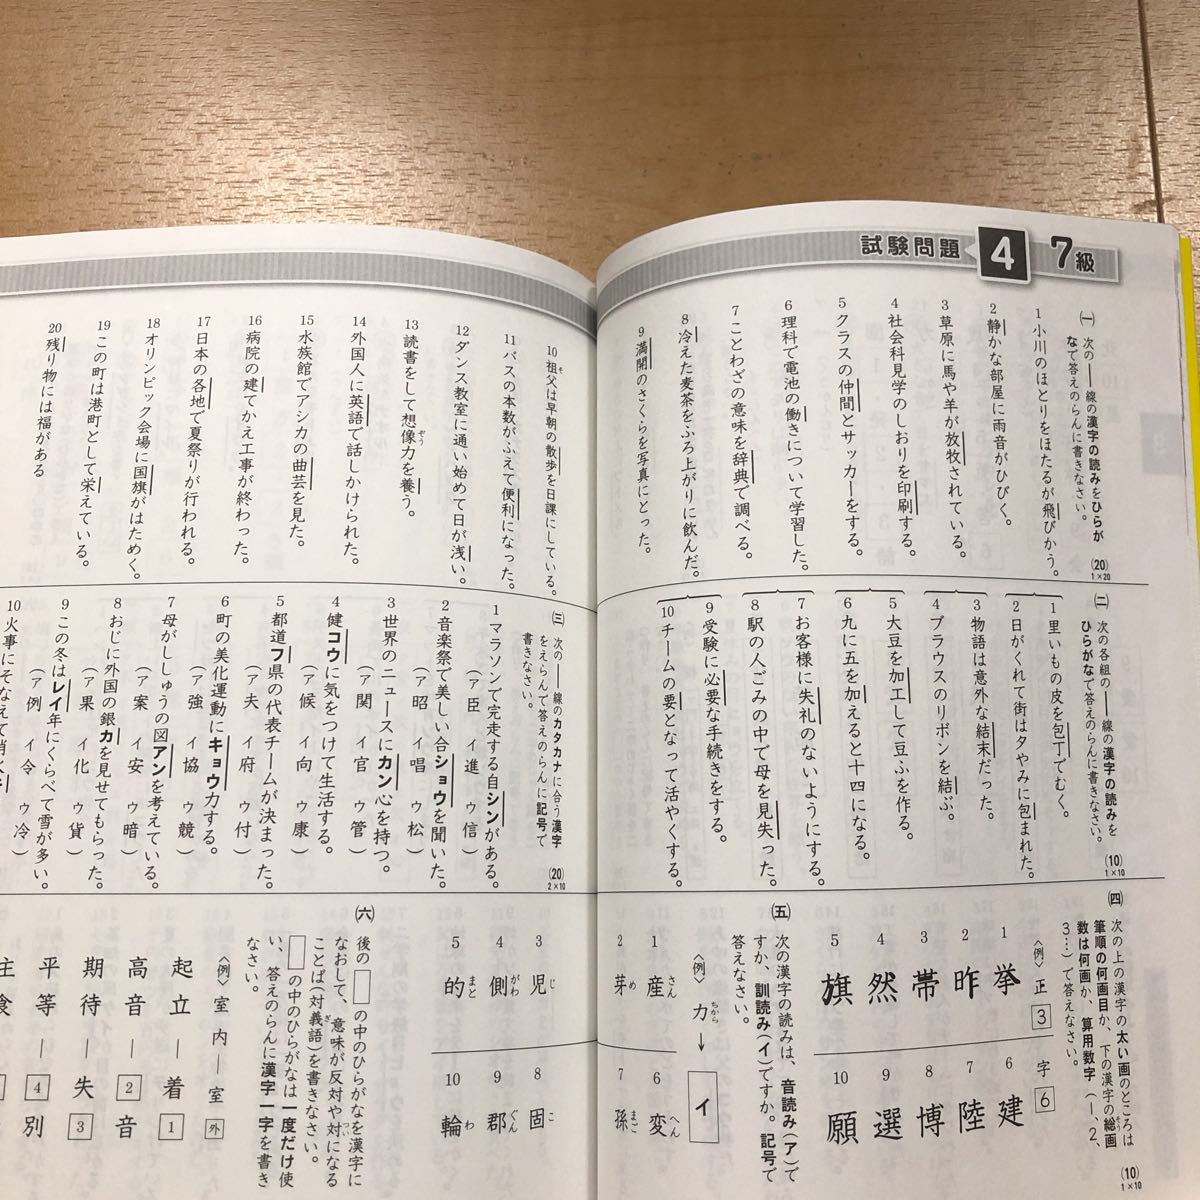 試験問題 4 7級
㈠ 次の――線の漢字の読みをひらが
なで答えのらんに書きなさい。
(20)
1×20
1 小川のほとりをほたるが飛びかう。
2 静かな部屋に雨音がひびく。
3 草原に馬や羊が放牧されている。
4 社会科見学のしおりを印刷する。
5 クラスの仲間とサッカーをする。
6 理科で電池の働きについて学習した。
7 ことわざの意味を辞典で調べる。
8 冷えた麦茶をふろ上がりに飲んだ。
9 満開のさくらを写真にとった。
10 祖父は早朝の散歩を日課にしている。
そ
11 バスの本数がふえて便利になった。
12 ダンス教室に通い始めて日が浅い。
13 読書をして想像力を養う。
ぞう
14 外国人に英語で話しかけられた。
15 水族館でアシカの曲芸を見た。
16 病院の建てかえ工事が終わった。
17 日本の各地で夏祭りが行われる。
18 オリンピック会場に国旗がはためく。
19 この町は港町として栄えている。
20 残り物には福がある
㈡ 次の各組の――線の漢字の読みを
ひらがなで答えのらんに書きなさい。
(10)
1×10
1 里いもの皮を包丁でむく。
2 日がくれて街は夕やみに包まれた。
3 物語は意外な結末だった。
4 ブラウスのリボンを結ぶ。
5 大豆を加工して豆ふを作る。
6 九に五を加えると十四になる。
7 お客様に失礼のないようにする。
8 駅の人ごみの中で母を見失った。
9 受験に必要な手続きをする。
10 チームの要となって活やくする。
㈢ 次の――線のカタカナに合う漢字
をえらんで答えのらんに記号で
書きなさい。
(20)
2×10
1 マラソンで完走する自シンがある。
(ア 臣 イ 進 ウ 信)
2 音楽祭で美しい合ショウを聞いた。
(ア 昭 イ 唱 ウ 松)
3 世界のニュースにカン心を持つ。
(ア 関 イ 官 ウ 管)
4 健コウに気をつけて生活する。
(ア 候 イ 向 ウ 康)
5 都道フ県の代表チームが決まった。
(ア 夫 イ 府 ウ 付)
6 町の美化運動にキョウ力する。
(ア 強 イ 協 ウ 競)
7 母がししゅうの図アンを考えている。
(ア 案 イ 安 ウ 暗)
8 おじに外国の銀カを見せてもらった。
(ア 果 イ 化 ウ 貨)
9 この冬はレイ年にくらべて雪が多い。
(ア 例 イ 令 ウ 冷)
10 火事にそなえて消
㈣ 次の上の漢字の太い画のところは
筆順の何画目か、下の漢字の総画
数は何画か、算用数字(1、2、
3…)で答えなさい。
(10)
1×10
〈例〉 正 3 字 6
1 挙
2 昨
3 帯
4 然
5 旗
6 建
7 陸
8 博
9 選
10 願
㈤ 次の漢字の読みは、音読み(ア)で
すか、訓読み(イ)ですか。記号で
答えなさい。
〈例〉 力 ちから → イ
1 産 さん
2 芽 め
3 児 じ
4 側 がわ
5 的 まと
6 変 へん
7 孫 まご
8 固 こ
9 郡 ぐん
10 輪 わ
㈥ 後の□の中のひらがなを漢字に
なおして、意味が反対や対になる
ことば(対義語)を書きなさい。
□の中のひらがなは一度だけ使
い、答えのらんに漢字一字を書き
なさい。
〈例〉 室内―室外
起立―着1
高音―2音
期待―失3
平等―4別
主食